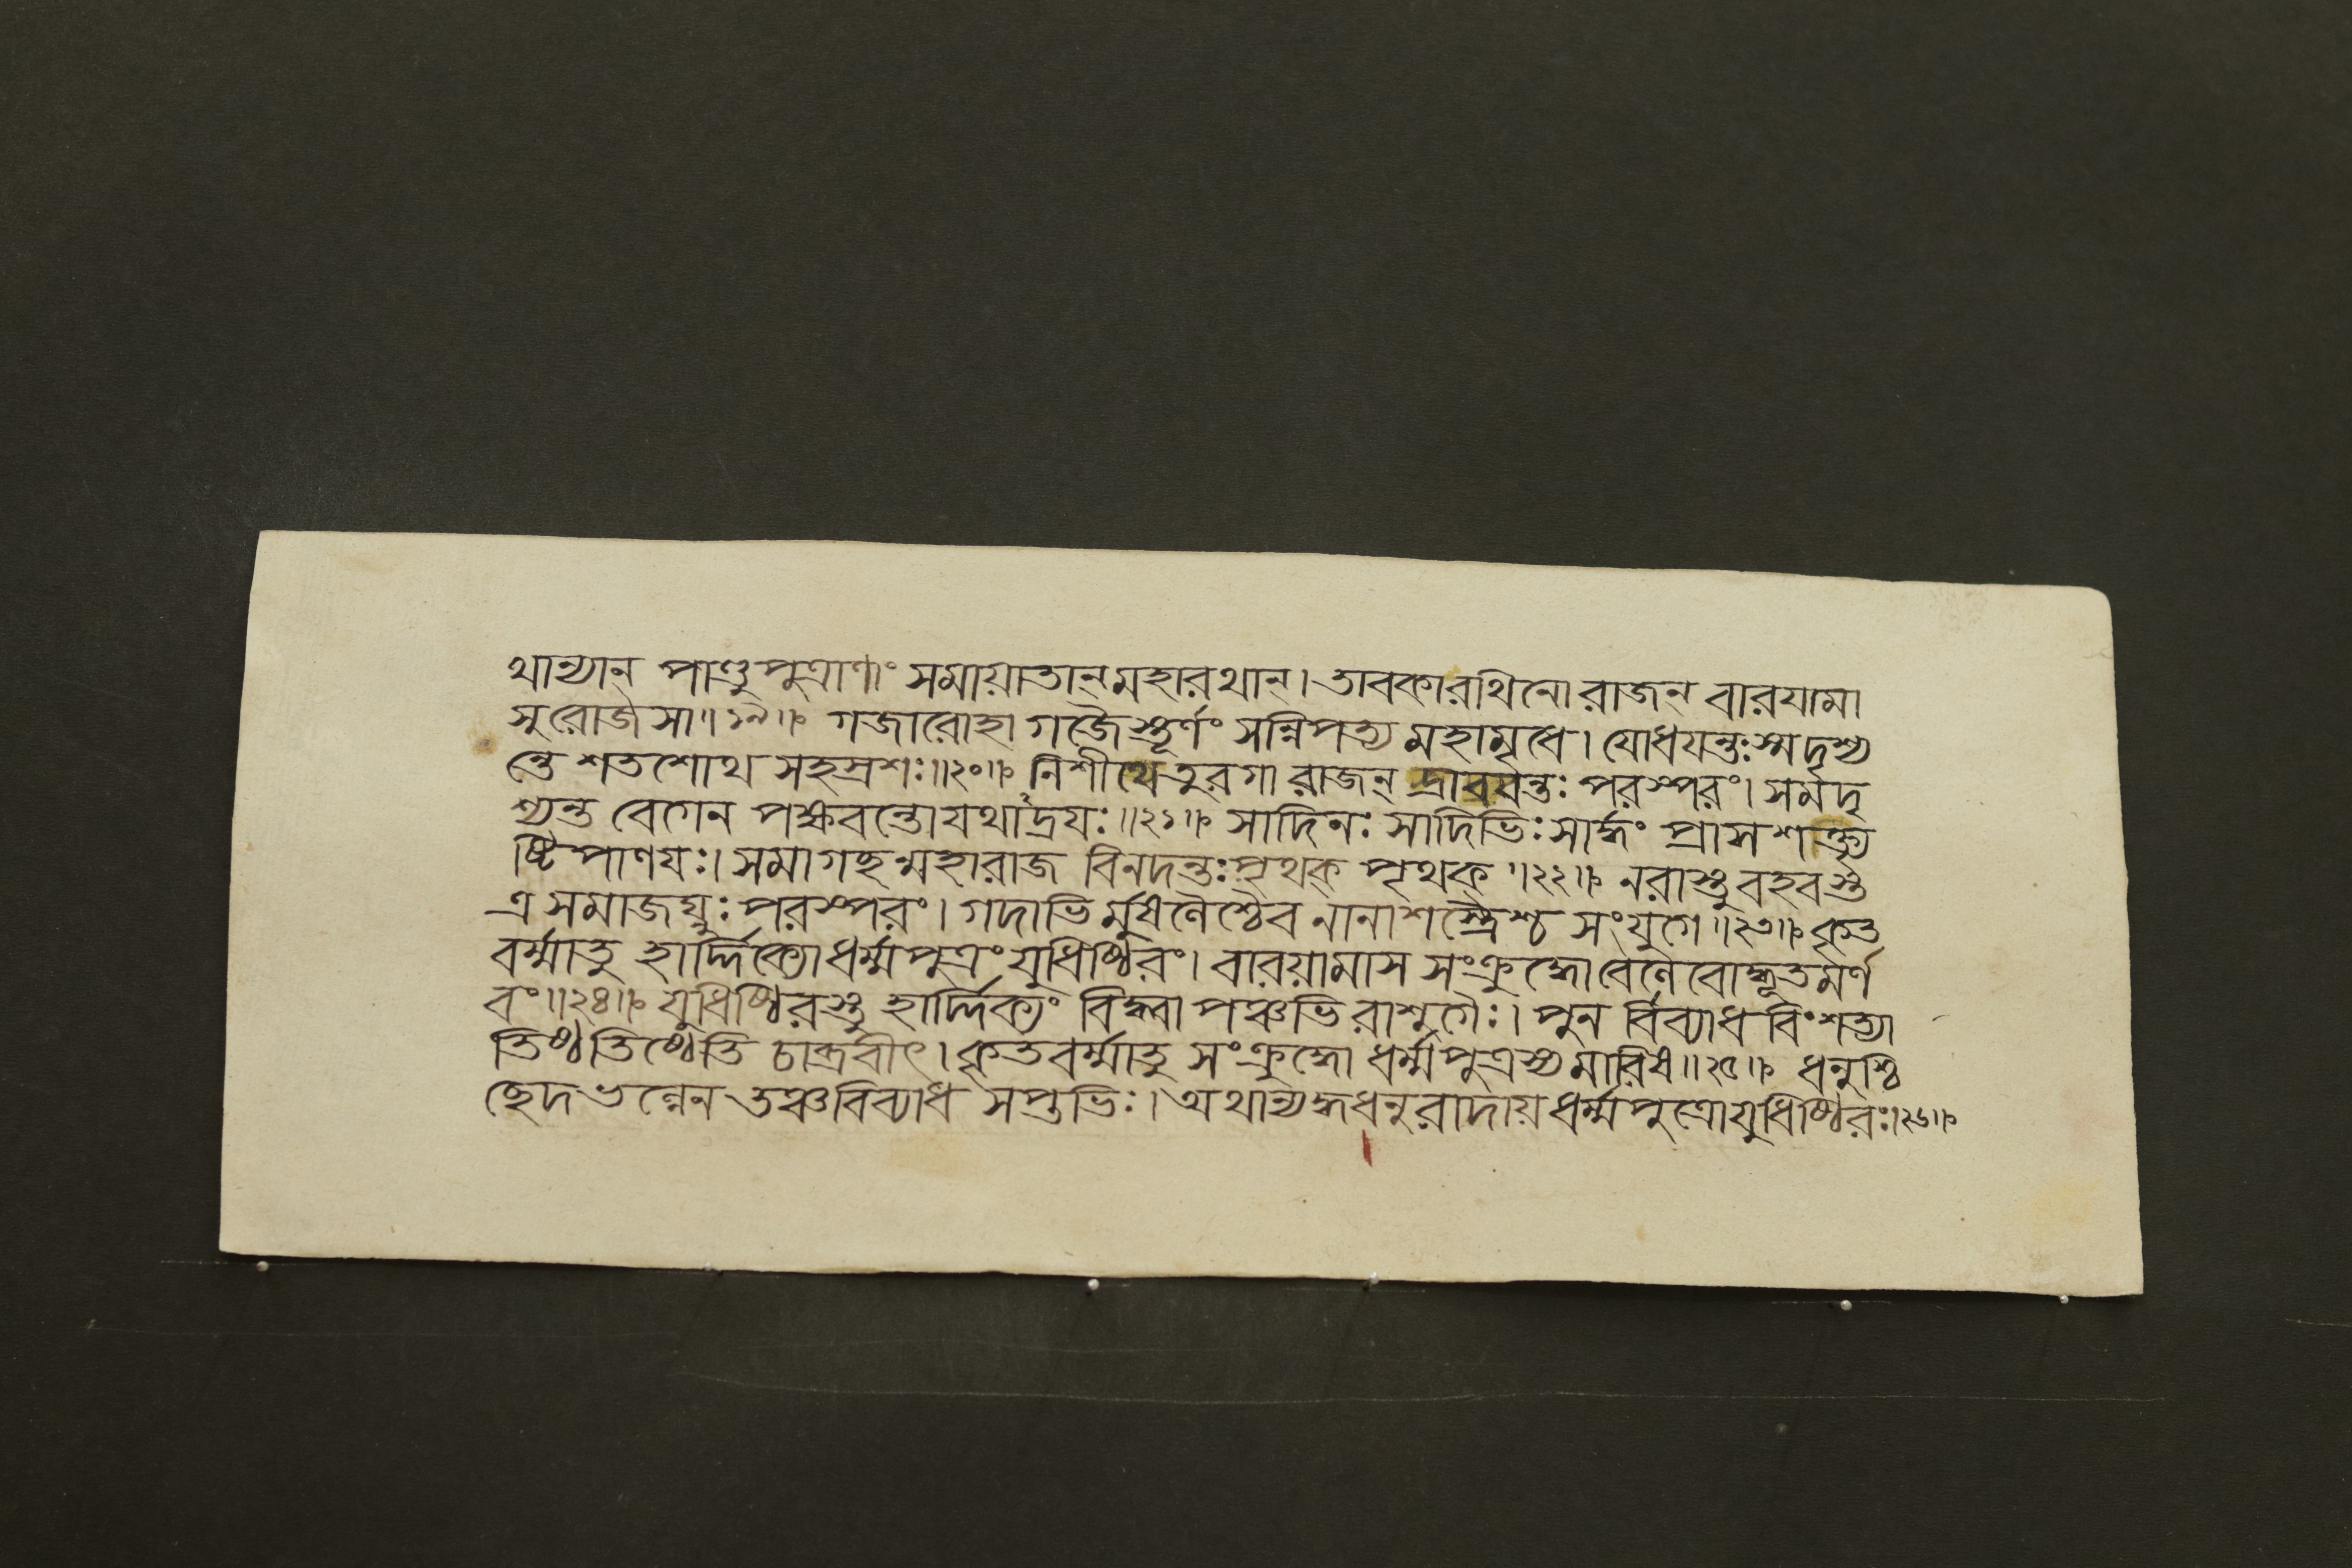 থান্যান্ পাণ্ডুপুত্রাণাং সমায়াতান্মহারথান্। তাবকারথিনো রাজন্ বারযামা
সুরোজসা॥১৯॥ গজারোহা গজৈস্তূর্ণং সন্নিপত্য মহামৃধে। যোধযন্তঃস্মদৃশ্য
ন্তে শতশোথ সহস্রশঃ॥২০॥ নিশীথে তুরগা রাজন্ দ্রাবযন্তঃ পরস্পরং। সমদৃ
শ্যন্ত বেগেন পক্ষবন্তোযথাদ্রযঃ॥২১॥ সাদিনঃ সাদিভিঃ সার্দ্ধং প্রাসশক্ত্যৃ
ষ্টিপাণযঃ। সমাগছন্মহারাজ বিনদন্তঃ পৃথক্ পৃথক্॥২২॥ নরাস্তু বহবস্ত
ত্র সমাজঘ্নুঃ পরস্পরং। গদাভির্মুষলৈশ্চৈব নানাশস্ত্রৈশ্চ সংযুগে॥২৩॥ কৃত
বর্ম্মাতু হার্দ্দিক্যোধর্ম্মপুত্রং যুধিষ্ঠিরং। বারয়ামাস সংক্রুদ্ধোবেলেবোদ্ধূতমর্ণ
বং॥২৪॥ যুধিষ্ঠিরস্তু হার্দ্দিক্যং বিদ্ধ্বা পঞ্চভিরাশুগৈঃ। পুনর্বিব্যাধ বিংশত্যা
তিষ্ঠতিষ্ঠেতি চাব্রবীৎ। কৃতবর্ম্মাতু সংক্রুদ্ধো ধর্ম্মপুত্রস্য মারিষ॥২৫॥ ধনুশ্চি
ছেদ ভল্লেন তঞ্চবিব্যাধ সপ্তভিঃ। অথান্যদ্ধধনুরাদায় ধর্ম্মপুত্রোযুধিষ্ঠিরঃ।২৬॥